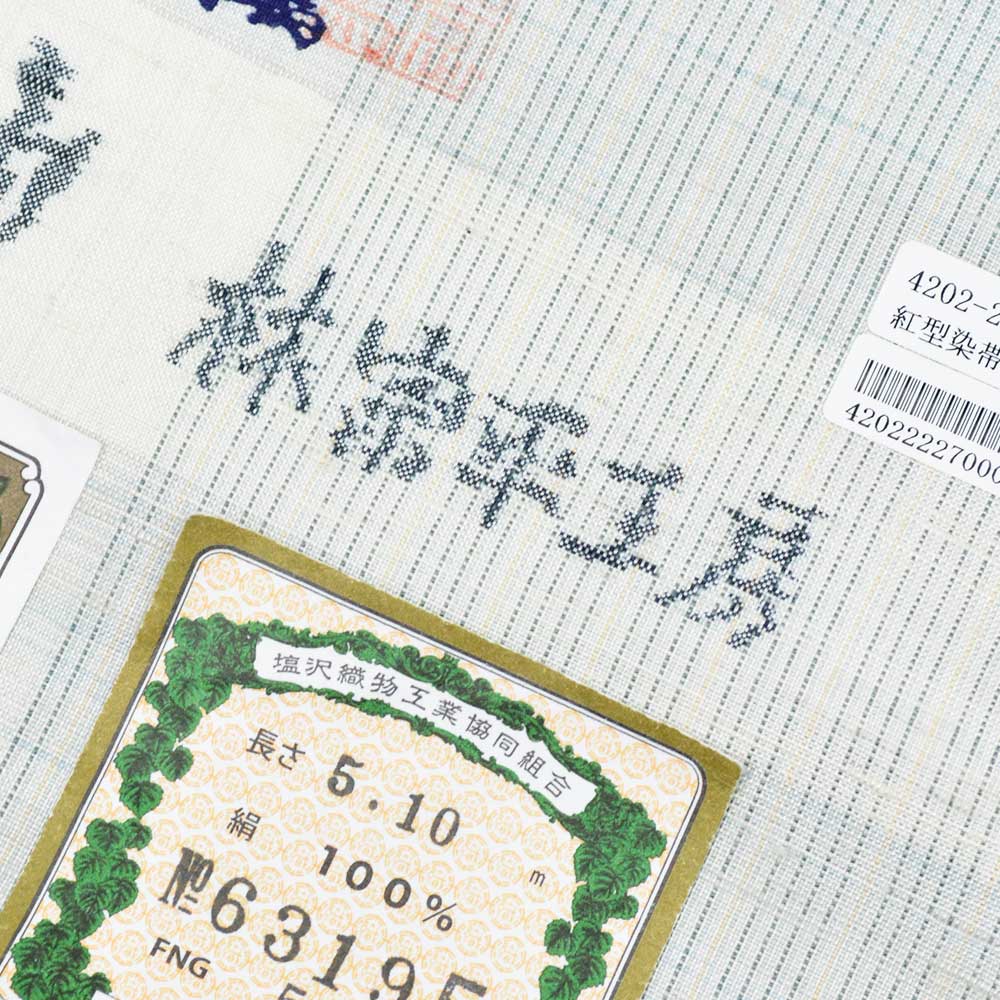 林宗平工房
4202-2
紅型染帯
42022227000
塩沢織物工業協同組合
長さ 5.10 m
絹 100%
№63195
FNG